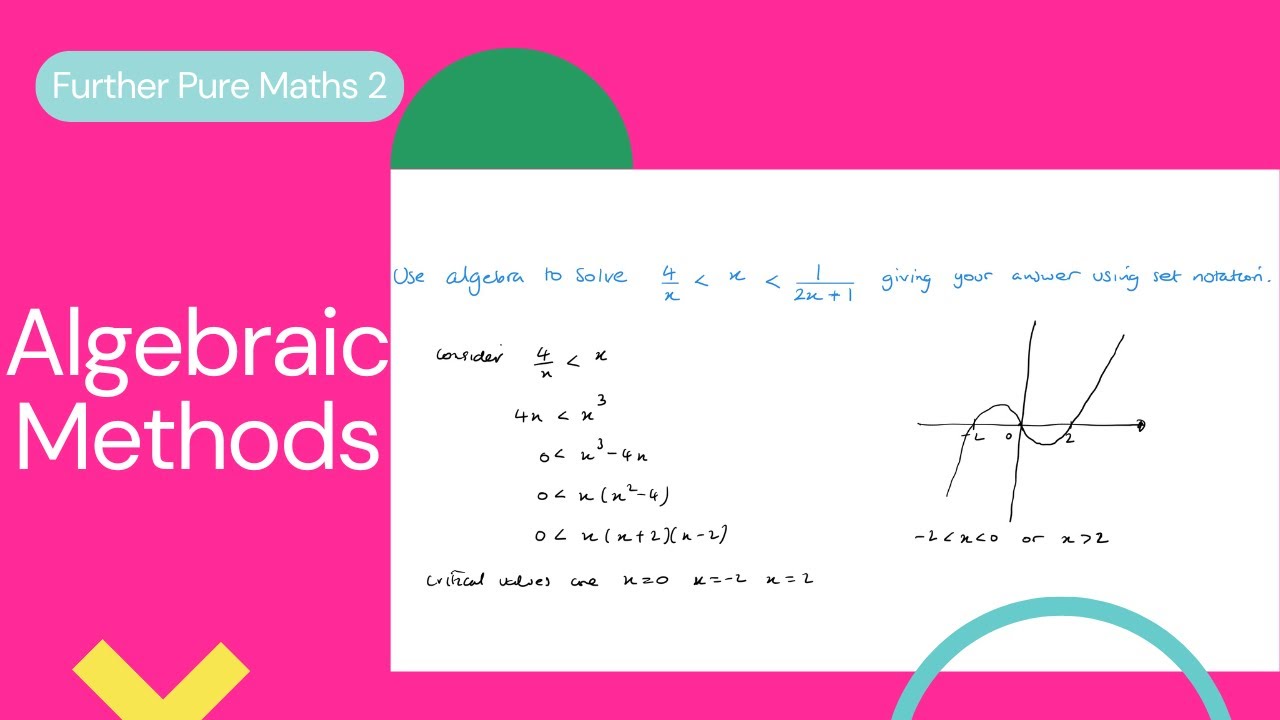 Further Pure Maths 2
Algebraic
Methods
Use algebra to solve 4/x < x < 1/(2x+1) giving your answer using set notation.
consider 4/x < x
4x < x³
0 < x³-4x
0 < x(x²-4)
0 < x(x+2)(x-2)
critical values are x=0 x=-2 x=2
-2 0 2
-2<x<0 or x>2